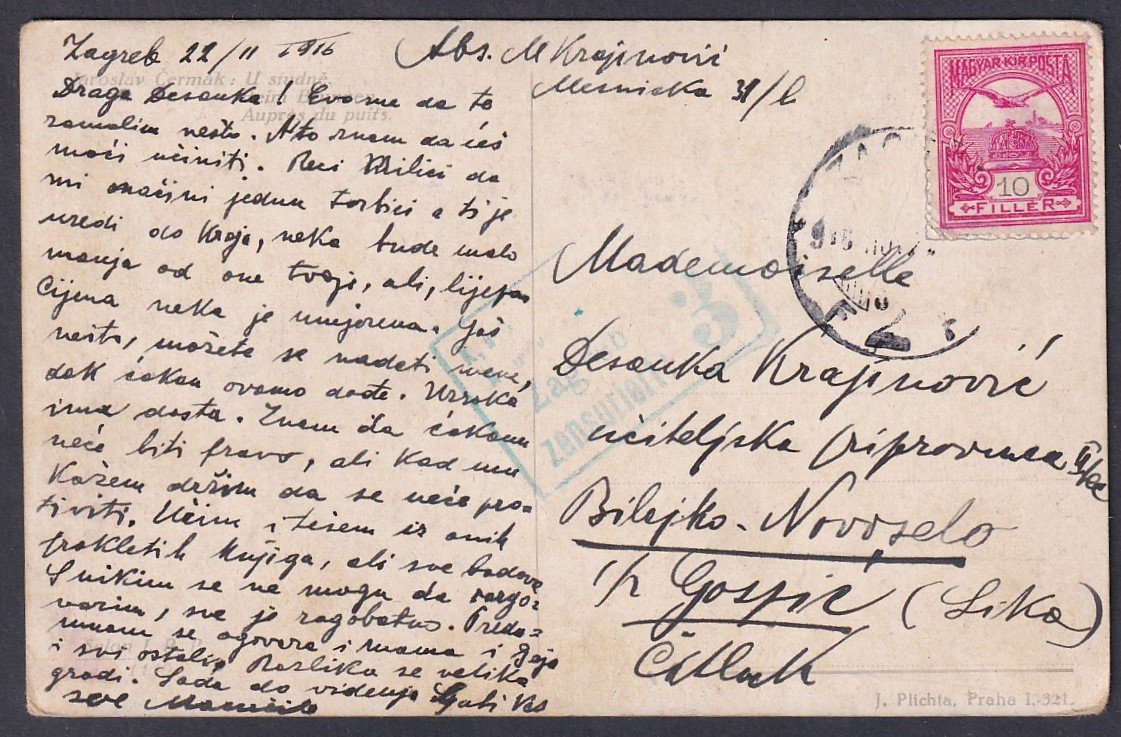 Zagreb 22/II 1916
Jaroslav Čermák: U studně.
Beim Brunnen.
Auprès du puits.
Draga Desanka! Evo me da te
zamolim nešto. A to znam da ćeš
moći učiniti. Reci Milici da
mi načini jednu torbicu a ti je
uredi do kraja, neka bude malo
manja od one tvoje, ali, lijepa
Cijena neka je umjerena. Još
nešto, možete se nadati mene,
dok ovamo dođe. Uzroka
ima dosta. Znam da
neće biti pravo, ali kad mu
kažem držim da se neće pro-
tiviti. Učim i iz onih
prokletih knjiga, ali sve badava
S nikim se ne mogu da razgo-
vorim, sve je
se ogovara i mama i
i svi ostali. Razlika se velika
gradi. Sada do viđenja Vas
sve
Abs. M Krajinović
Mesnička 31/
MAGYAR KIR. POSTA
10
FILLÉR
Mademoiselle
Desanka Krajinović
učiteljska pripravnica
Bilajko-Novoselo
Gospić (Lika)
Čitluk
Zagreb 3
zensuriert
J. Plichta, Praha I.-321.